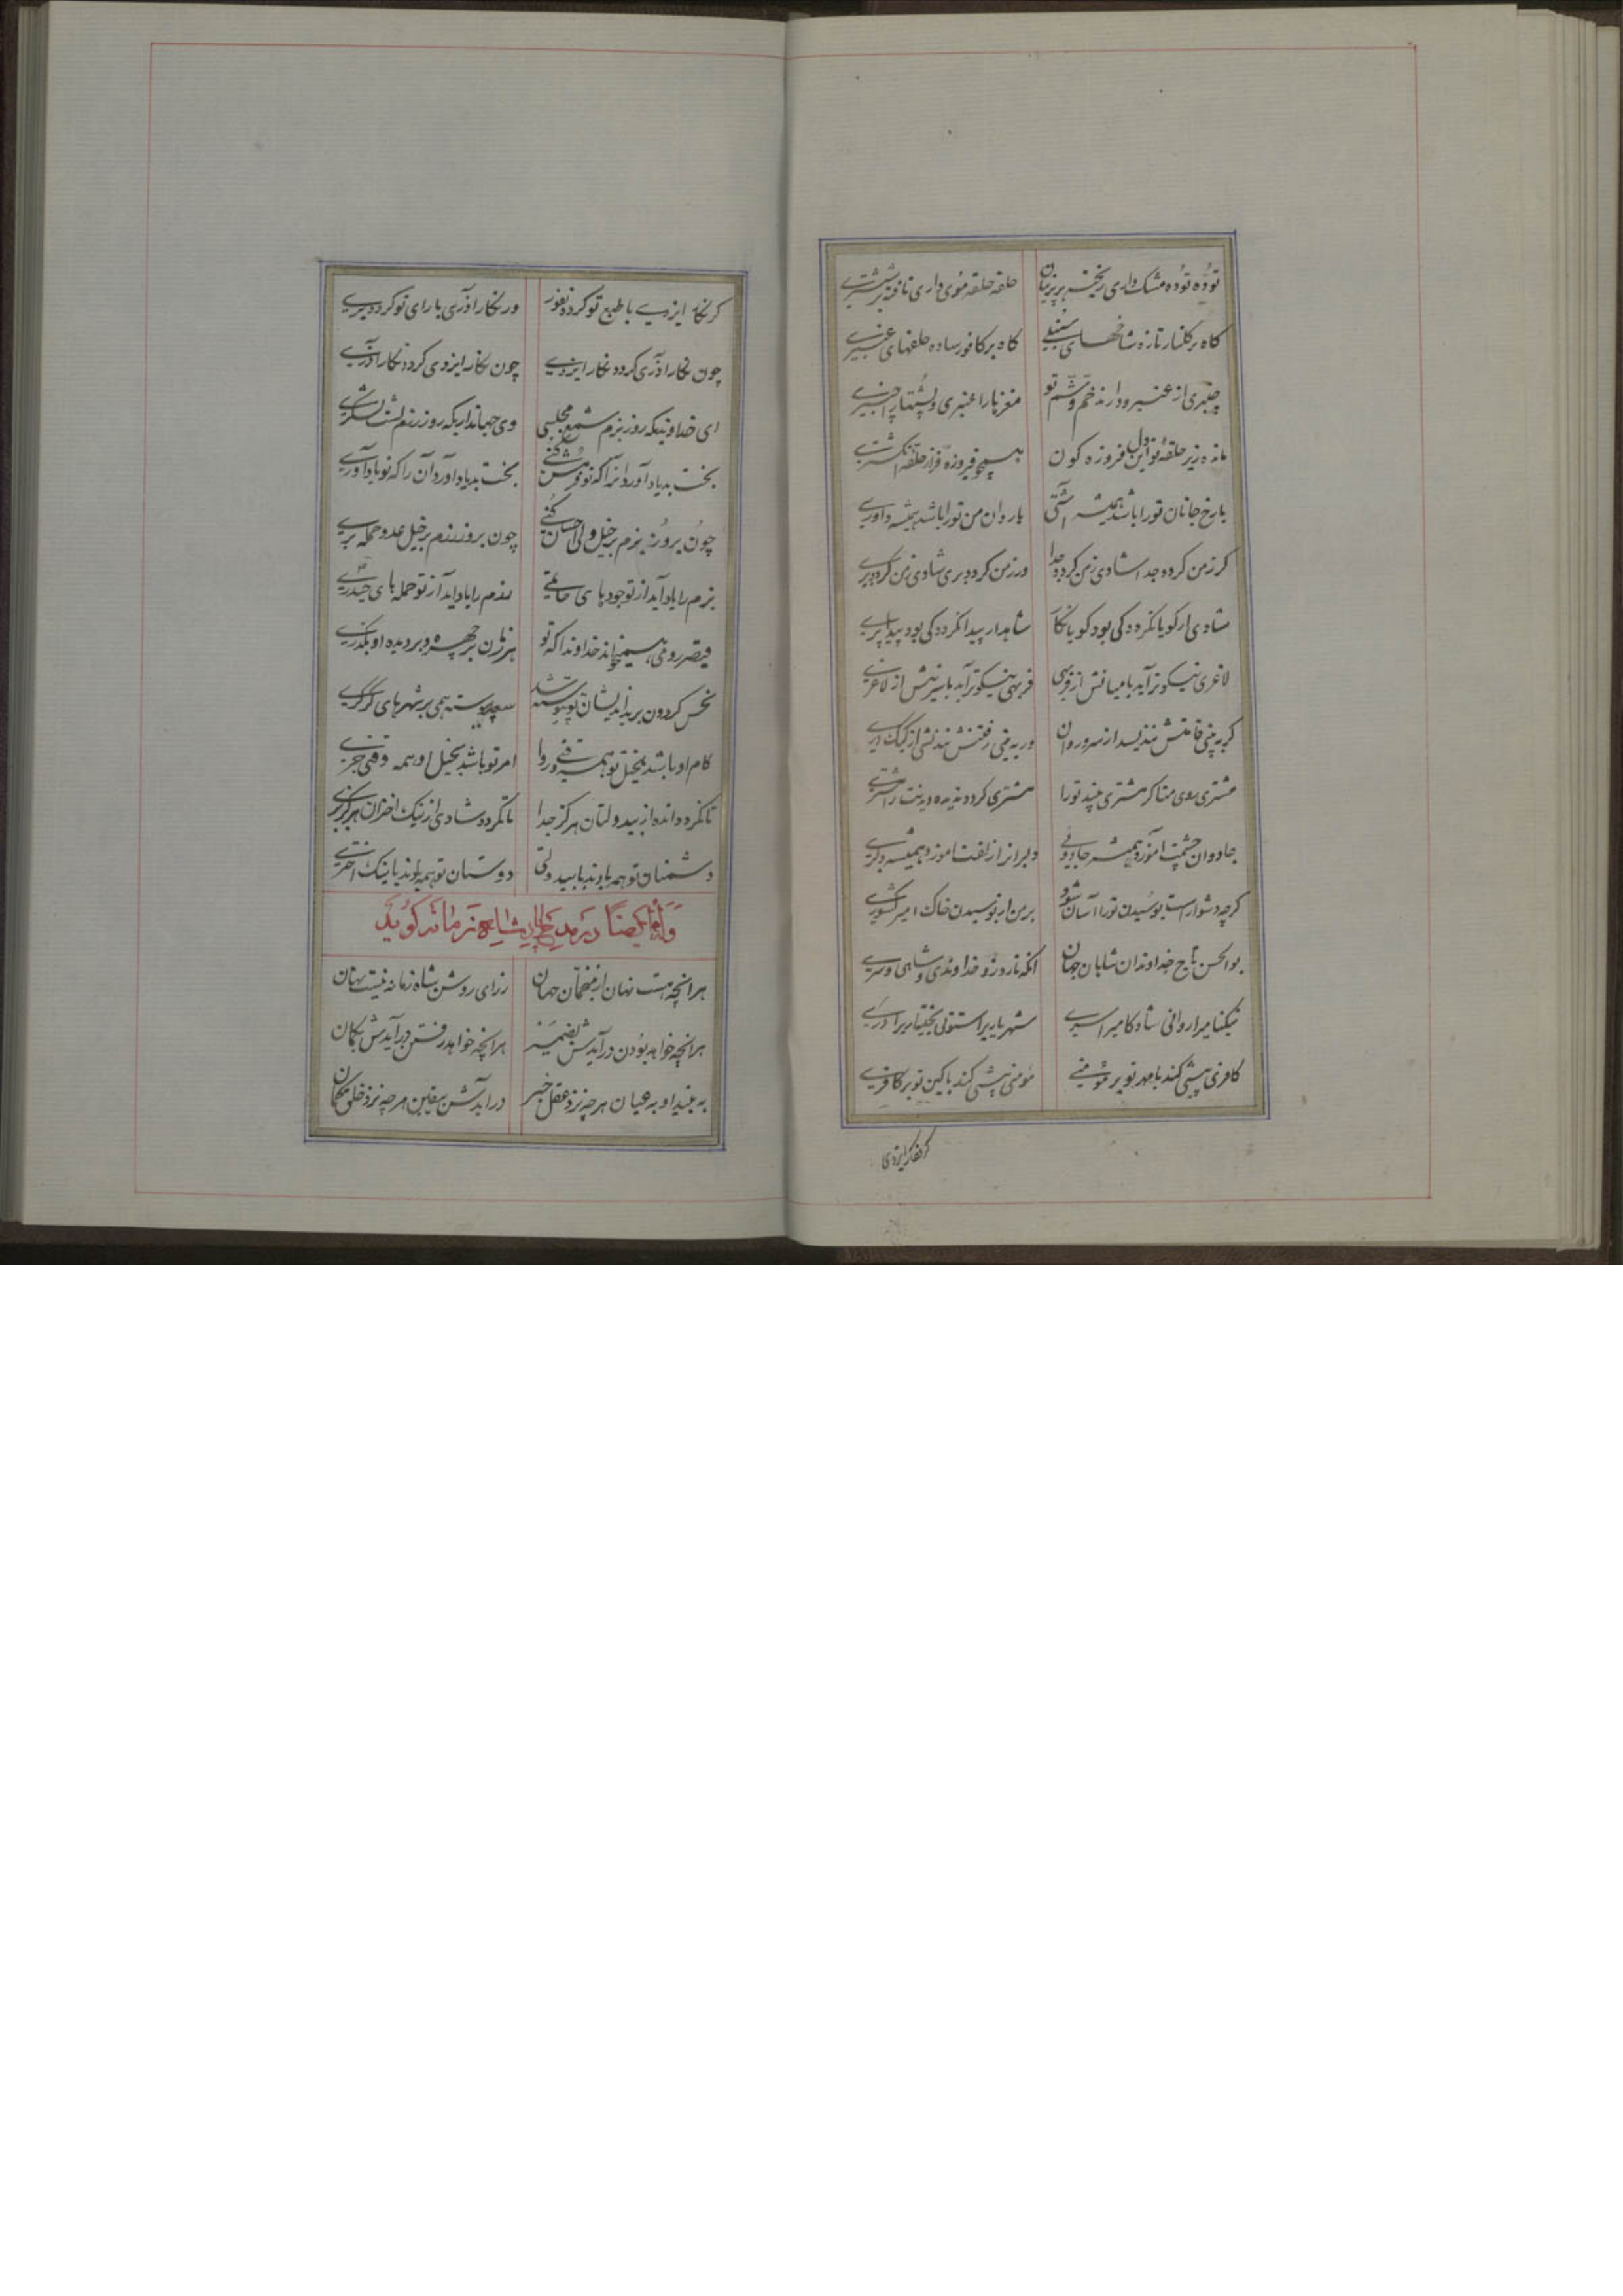 توده توده مشک داری ریخته بر پرنیان حلقه حلقه موی داری تافته بر ششتری
گاه بر گلنار تازه شاخهای سنبلی گاه بر کافور ساده حلقهای عنبری
چنبری از عنبر و دارند خم و شم تو مغزها را عنبری و پشتها را چنبری
مانده زیر حلقه تو این دل فیروزه گون همچو فیروزه فراز حلقه انگشتری
با رخ جانان تو را باشد همیشه آشتی با روان من تو را باشد همیشه داوری
کر ز من کردد جدا شادی ز من کردد جدا ور ز من کردد بری شادی ز من کردد بری
شادی ار کویا نکردد کی بود کویا نکار شاهد ار پیدا نکردد کی بود پیدا پری
لاغری نیکوتر آید با میانش از فربهی فربهی نیکوتر آید با سرینش از لاغری
کر به بینی قامتش نندیشد از سرو روان ور به بینی رفتنش نندیشی از کبک دری
مشتری روی منا کر مشتری بیند تو را مشتری کردد ندیده دیدنت را مشتری
جادوان چشمت آموزد همیشه جادوئی دلبران را زلفت آموزد همیشه دلبری
کرچه دشوار است بوسیدن تو را آسان شود بر من ار بوسیدن خاک امیر کشوری
بوالحسن تاج خداوندان شاهان جهان آنکه نازد زو خداوندی و شاهی و سری
نیکنامی را روانی شادکامی را سری شهریاری را ستونی بختیاری را دری
کافری پیشی کند با مهر تو بر مؤمنی مؤمنی پیشی کند با کین تو بر کافری
کر نکار ایزدی
کر نکار ایزدی با طبع تو کردد نفور ور نکار آذری با رای تو کردد بری
چون نکار آذری کردد نکار ایزدی چون نکار ایزدی کردد نکار آذری
ای خداوندیکه روز بزم شمع مجلسی وی جهانداریکه روز رزم پشت لشکری
بخت بد یاد آورد آنرا که تو فرمش کنی بخت بد یاد آورد آن را که تو یاد آوری
چون بروز بزم بر خیل ولی احسان کنی چون بروز رزم بر خیل عدو حمله بری
بزم را یاد آید از تو جودهای حاتمی رزم را یاد آید از تو حمله های حیدری
قیصر رومی همیخواند خداوندا که تو هر زمان بر چهره و بر دیده او بگذری
نحس کردون بر بداندیشان تو پیوسته شد سعد پیوسته همی بر شهرهای کرکری
کام او باشد بخیل تو همه فتنی و روا امر تو باشد بخیل او همه
تا نکردد انده از بیدولتان هرکز جدا تا نکردد شادی از نیک اختران هرکز بری
دشمنان تو همه باوند با بیدولتی دوستان تو همه باوند با نیک اختری
وله ایضا در مدح شاه زمانه کوید
هرانچه هست نهان از منجمان جهان ز رای روشن شاه زمانه نیست نهان
هرانچه خواهد بودن در آیدش بضمیر هرانچه خواهد رفتن در آیدش بکمان
به بیند او به عیان هرچه نزد عقل خبر در آیدش بیقین هرچه نزد خلق کمان